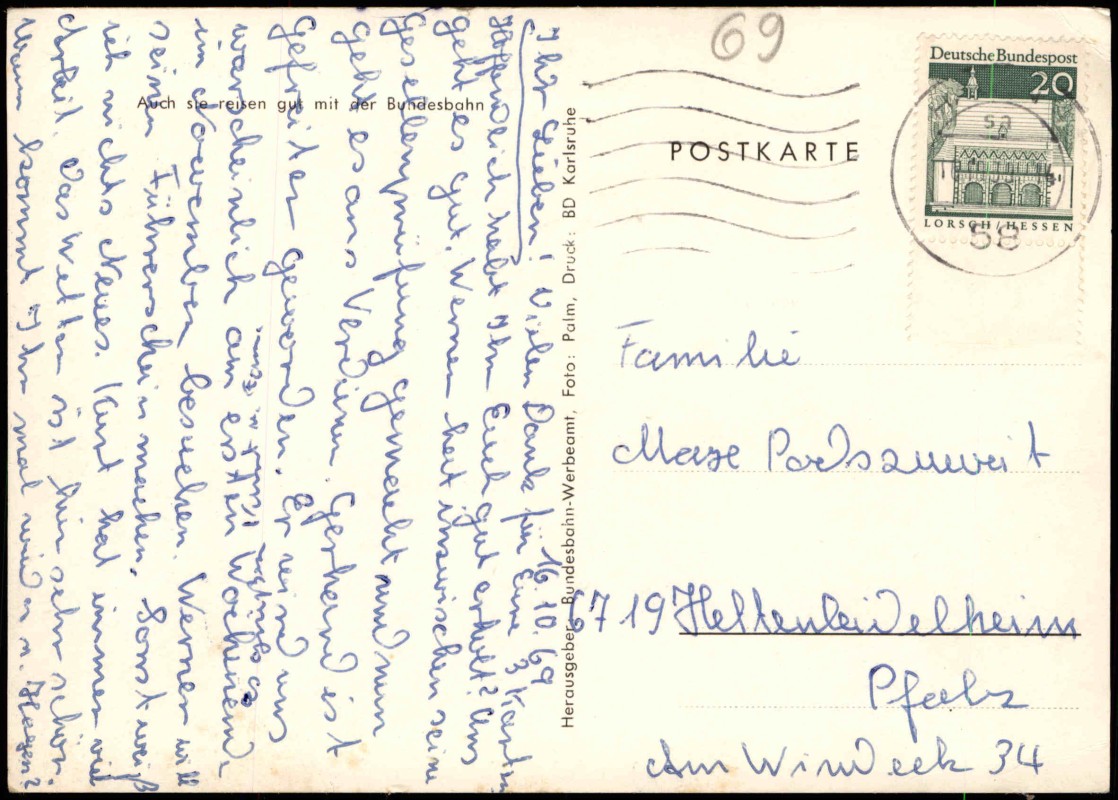 69
Deutsche Bundespost
20
LORSCH/HESSEN
58
Auch sie reisen gut mit der Bundesbahn
POSTKARTE
Herausgeber: Bundesbahn-Werbeamt, Foto: Palm, Druck: BD Karlsruhe
16.10.69
Ihr Lieben! Vielen Dank für Eure 3 Karten
Hoffendlich habt Ihr Euch gut erholt? Uns
geht es gut. Werner hat inzwischen seine
Gesellenprüfung gemacht und nun
geht es ans Verdienen. Gerhard ist
Gefreiter geworden. Er wird uns
warscheinlich am ersten Wochenend
im November besuchen. Werner will
seinen Führerschein machen. Sonst weiß
ich nichts Neues. Kurt hat immer viel
Arbeit. Das Wetter ist hier sehr schön.
Wann kommt Ihr mal wieder n. Hagen?
Familie
Maxe Podszuweit
6719 Hettenleidelheim
Pfalz
Am Windeck 34